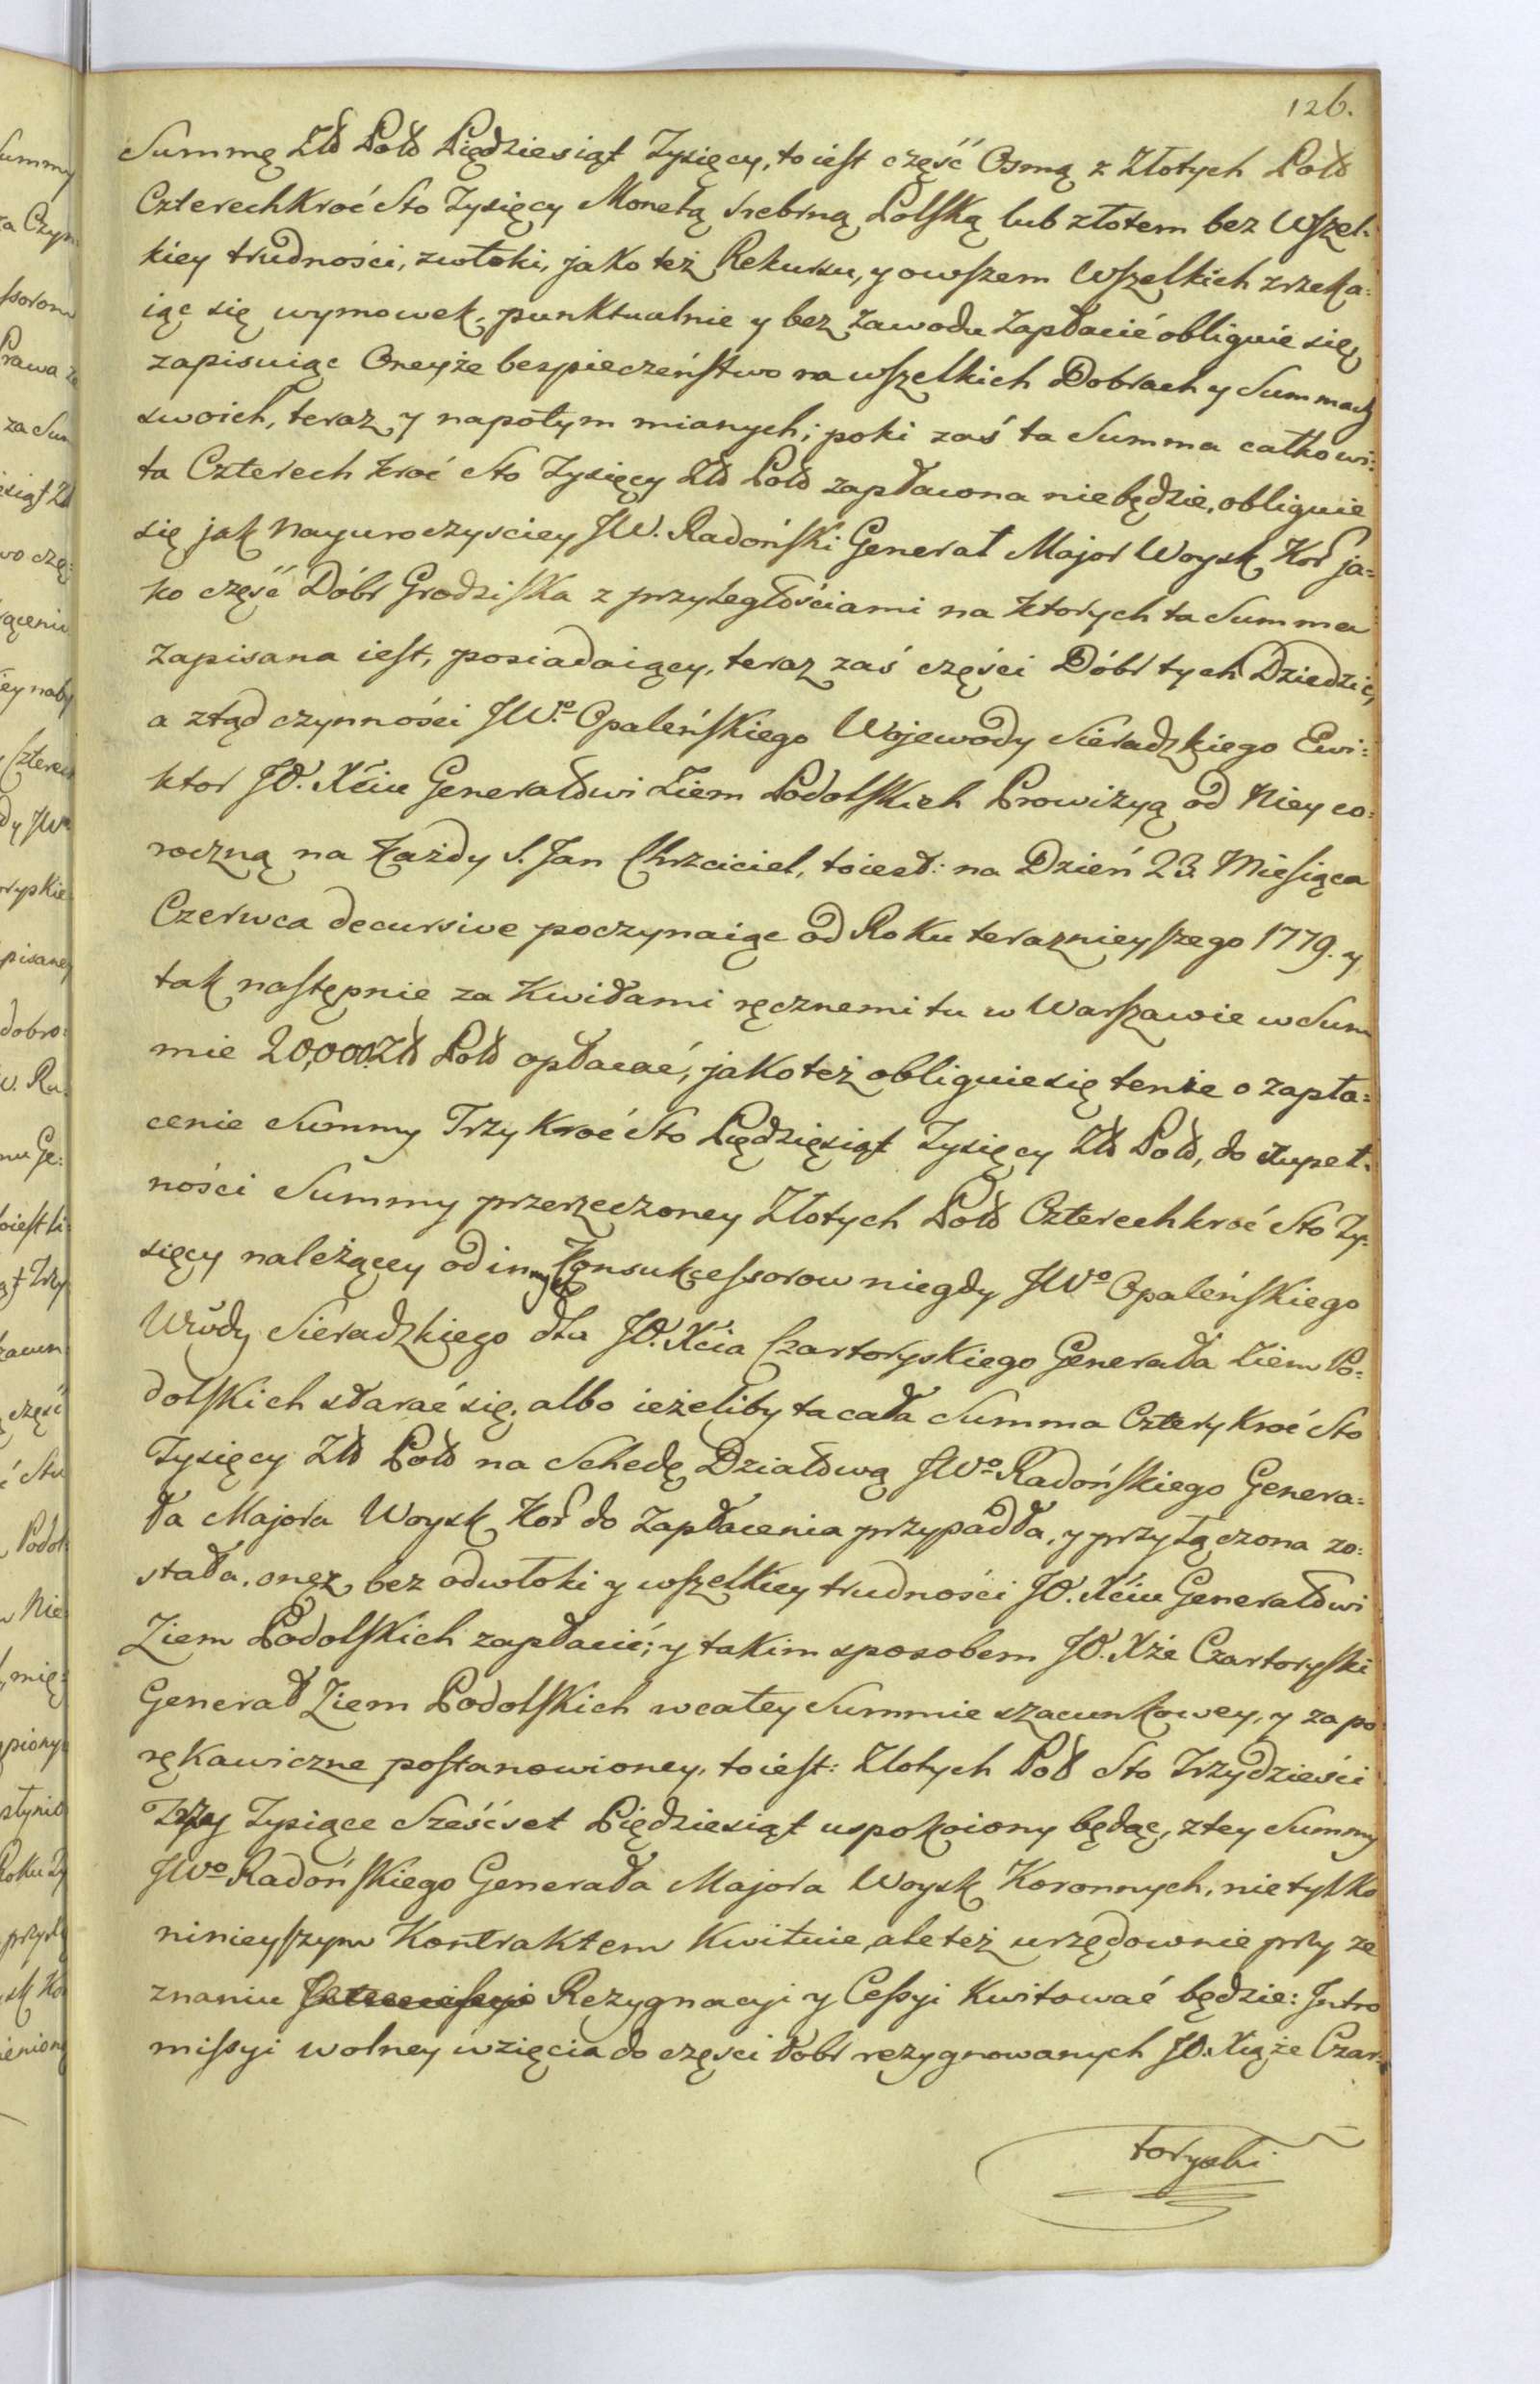 126.
Summę Zło Polo Piędziesiąt Tysięcy, to iest część Osmą z Złotych Polo
Czterechkroć Sto Tysięcy Monetą srebrną Polską lub złotem bez Wszel:
kiey trudności, zwłoki, jako też Rekursu, y owszem Wszelkich zrzeka:
iąc się wymowek, punktualnie y bez zawodu zapłacić obliguie się,
zapisuiąc Oneyże bespieczeństwo na wszelkich Dobrach y Summach
swoich, teraz y napotym mianych; poki zaś ta Summa całkowi:
ta Czterech kroć Sto Tysięcy Zło Polo zapłacona niebędzie, obliguie
się jak Nayuroczysciey JW. Radoński Generał Major Woysk Kor ja=
ko część Dóbr Grodziska z przyległościami na ktorych ta Summa
zapisana iest, posiadaiący, teraz zaś części Dóbr tych Dziedzic,
a ztąd czynności JWo. Opaleńskiego Wojewody Sieradzkiego Ewi:
ktor JO. Xciu Generałowi Ziem Podolskich Prowizyą od Niey co:
roczną na każdy S. Jan Chrzciciel, toiest: na Dzień 23. Miesiąca
Czerwca decursive poczynaiąc od Roku teraznieyszego 1779. y
tak następnie za Kwitami ręcznemi tu w Warszawie w Sum
mie 20,000. Zło Polo opłacać, jako też obliguie się tenże o zapła=
cenie Summy Trzy Kroć Sto Piędzięsiąt Tysięcy Zło Polo, do zupeł:
ności Summy przerzeczoney Złotych Polo Czterechkroć Sto Ty:
sięcy należącey od innych Konsukcessorow niegdy JWo Opaleńskiego
Wwdy Sieradzkiego dla JO. Xcia Czartoryskiego Generała Ziem Po:
dolskich starać się, albo ieżeliby ta cała Summa Cztery Kroć Sto
Tysięcy Zło Polo na Schedę Działową JWo Radońskiego Genera:
ła Majora Woysk Kor do zapłacenia przypadła, y przyłączona zo:
stała, onęz bez odwłoki y wszelkiey trudności JO. Xciu Generałowi
Ziem Podolskich zapłacić; y takim sposobem JO. Xże Czartoryski
Generał Ziem Podolskich w całey Summie szacunkowey, y za po
rękawiczne postanowioney, to iest: Złotych Pol Sto Trzydzieści
Trzy Tysiące Sześćset Pięćdziesiąt uspokoiony będąc, z tey Summy
JWo Radońskiego Generała Majora Woysk Koronnych, nie tylko
ninieyszym Kontraktem Kwituie, ale też urzędownie przy ze
znaniu Rezygnacyi y Cessyi Kwitować będzie: Intro
missyi wolney wzięcia do części dobr rezygnowanych JO. Xiąże Czar=
toryski